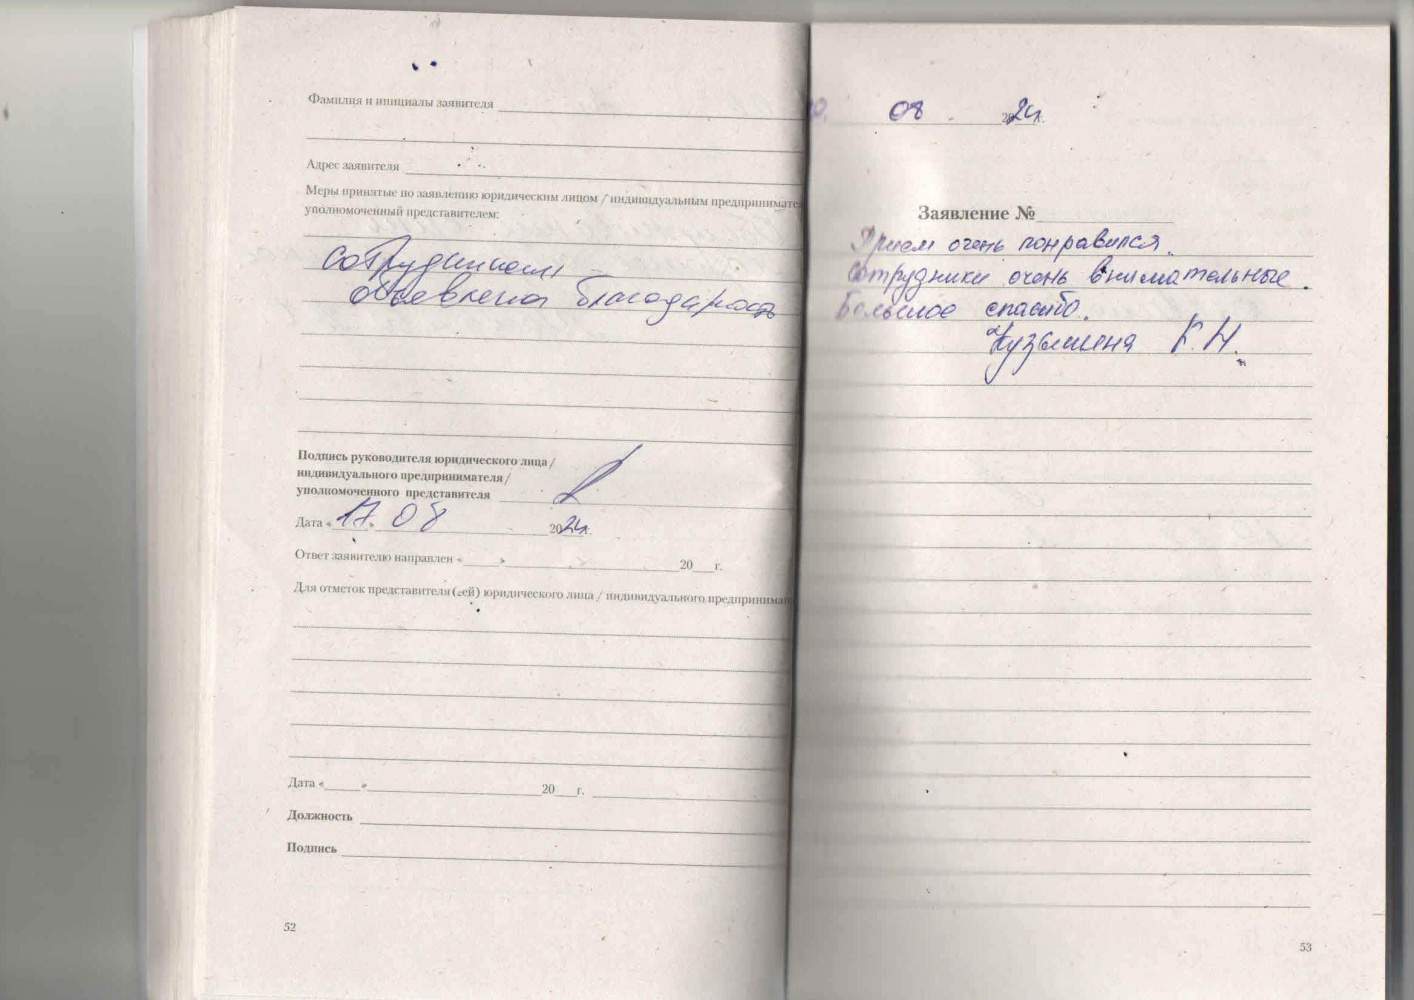 Фамилия и инициалы заявителя
Адрес заявителя
Меры принятые по заявлению юридическим лицом / индивидуальным предпринимате
уполномоченный представителем:
сотрудникам
объевлена благодарность
Подпись руководителя юридического лица/
индивидуального предпринимателя/
уполномоченного представителя
Дата «17» 08 2024г.
Ответ заявителю направлен « » 20 г.
Для отметок представителя(-ей) юридического лица / индивидуального предпринимат
Дата « » 20 г.
Должность
Подпись
52
08 2024г.
Заявление №
Прием очень понравился.
Сотрудники очень внимательные.
Большое спасибо.
Кузьмина К.Н.
53